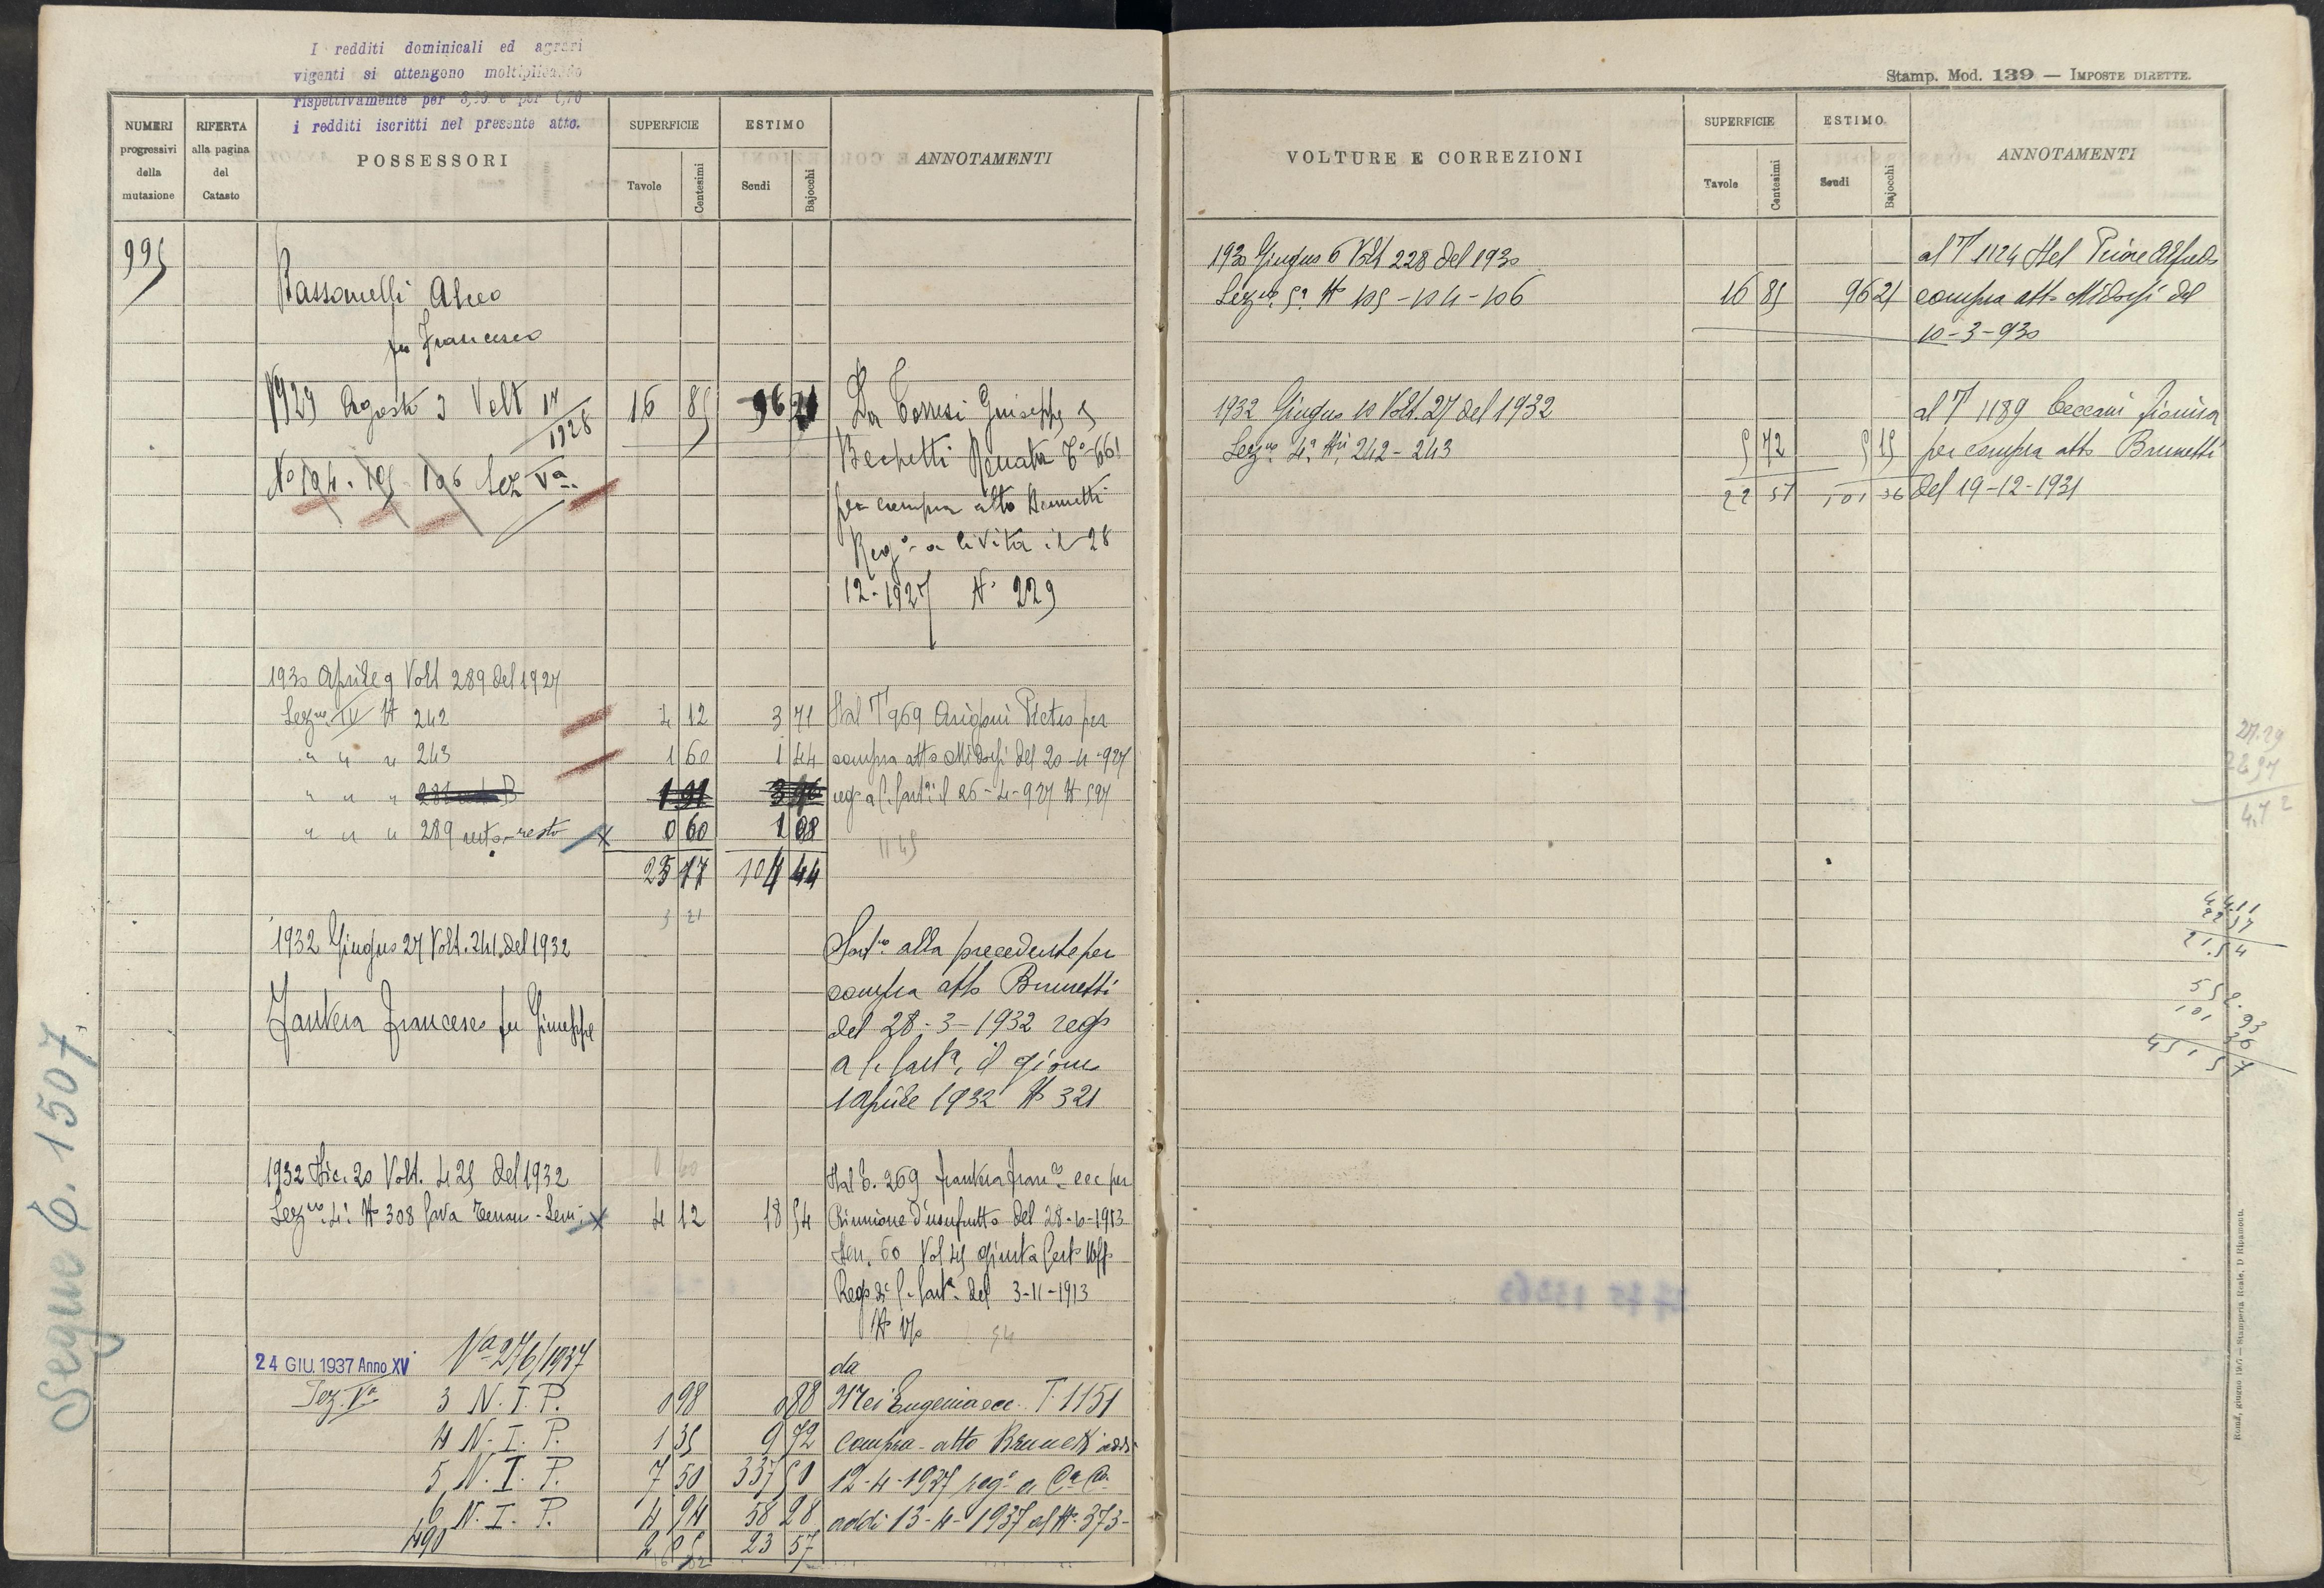 I redditi dominicali ed agrari
vigenti si ottengono moltiplicando
rispettivamente per e per
i redditi iscritti nel presente atto.
Stamp. Mod. 139 — IMPOSTE DIRETTE.
NUMERI progressivi della mutazione
RIFERTA alla pagina del Catasto
POSSESSORI
SUPERFICIE
Tavole
Centesimi
ESTIMO
Scudi
Bajocchi
ANNOTAMENTI
995
Alceo
fu Francesco
1929 Agosto 3 Volt 14/1928 16 85 96 21 Da Giuseppe e
Bechetti Renata 661
No 104. 105 106 Sez Va.
per compra atto Brunetti
Rego a Civita il 28
12-1927 N. 229
1930 Aprile 9 Volt 289 del 1927
Sez IV N 242 4 12 3 71 Dal T 969 Pietro per
" " " 243 1 60 1 44 compra atto Midossi del 20-4-927
" " " 1 91 3 96 reg a C. Cast. il 26-4-927 N 597
" " " 289 resto 0 60 1 08
1145
23 17 104 44
3 21
1932 Giugno 27 Volt. 241 del 1932
Jankera Francesco fu Giuseppe
alla precedente per
compra atto Brunetti
del 28-3-1932 rego
a C. Cast.a il giorno
1 Aprile 1932 N 321
1932 Dic. 20 Volt. 425 del 1932
Sez. 4a N 308 Cava - Sem. 4 12 18 54
Dal C. 269 Jankera Franco ecc per
Riunione d'usufrutto del 28-6-1913
Den. 60 Vol 45 giusta Cert Uff
Rego di C. Cast.a del 3-11-1913
54
24 GIU. 1937 Anno XV Va 276/1937
da
Sez. Va 3 N. I. P. 0 98 0 88 Mei Eugenia ecc. T. 1151
4 N. I. P. 1 35 9 72 Compra - atto Brunetti addì
5 N. I. P. 7 50 337 50 12-4-1937 rego a Ca Ca
6 N. I. P. 4 94 58 28 addì 13-4-1937 al N. 373-
490 23 57
Segue C. 1507.
VOLTURE E CORREZIONI
SUPERFICIE
Tavole
Centesimi
ESTIMO.
Scudi
Bajocchi
ANNOTAMENTI
1930 Giugno 6 Volt 228 del 1930 al T 1124 Del Priore Alfredo
Sez. 5a N 105-104-106 16 85 96 21 compra atto Midossi del
10-3-930
1932 Giugno 10 Volt. 27 del 1932 al T 1189 Ceccani
Sez. 4a Ni 242-243 5 72 5 15 per compra atto Brunetti
22 57 101 36 del 19-12-1931
27.29
22.57
4.72
44.11
22 57
21.54
101 36
451 57
Roma, giugno 1927 — Stamperia Reale, D. Ripamonti.